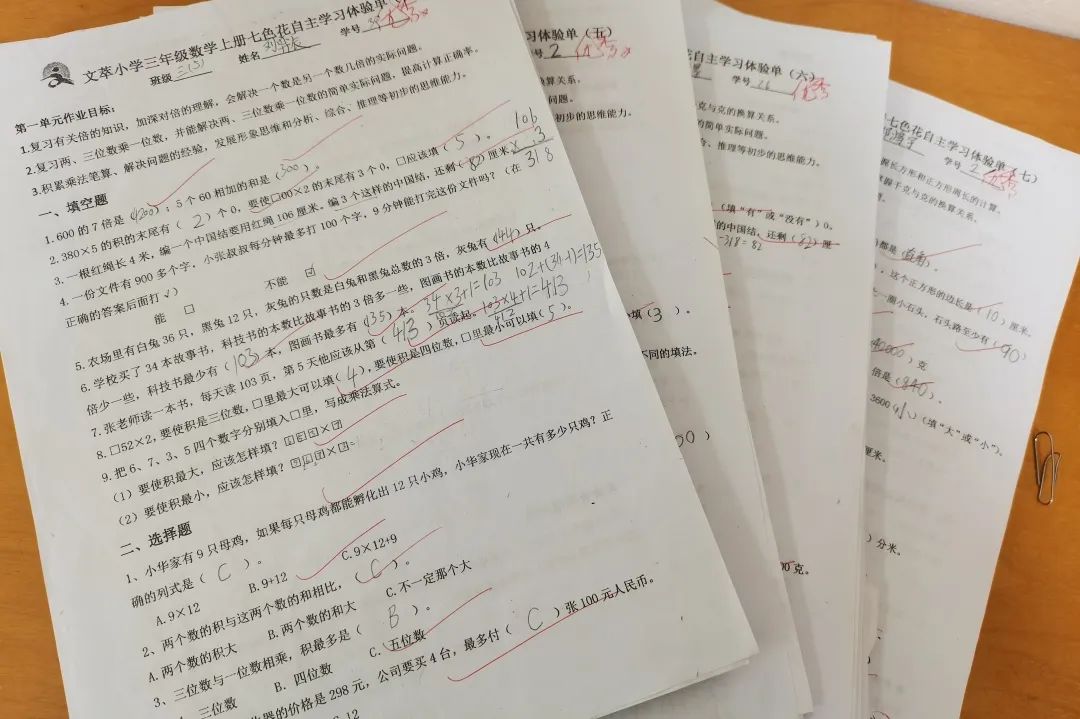 文萃小学三年级数学上册七色花自主学习体验单
班级 三(5) 姓名 学号
第一单元作业目标：
1.复习有关倍的知识，加深对倍的理解，会解决一个数是另一个数几倍的实际问题。
2.复习两、三位数乘一位数，并能解决两、三位数乘一位数的简单实际问题，提高计算正确率。
3.积累乘法笔算、解决问题的经验，发展形象思维和分析、综合、推理等初步的思维能力。
一、填空题
1.600 的 7 倍是（4200）；5 个 60 相加的和是（300）。
2.380×5 的积的末尾有（ 2 ）个 0，要使□00×2 的末尾有 3 个 0，□应该填（ 5 ）。
3.一根红绳长 4 米，编一个中国结要用红绳 106 厘米。编 3 个这样的中国结，还剩（82）厘米。
106
× 3
318
4.一份文件有 900 多个字，小张叔叔每分钟最多打 100 个字，9 分钟能打完这份文件吗？（在
正确的答案后面打√）
能 □ 不能 ☑
5.农场里有白兔 36 只，黑兔 12 只，灰兔的只数是白兔和黑兔总数的 3 倍，灰兔有（144）只。
6.学校买了 34 本故事书，科技书的本数比故事书的 3 倍多一些，图画书的本数比故事书的 4
倍少一些，科技书最少有（103）本，图画书最多有（135）本。34×3+1=103 102+(34-1)=135
7.张老师读一本书，每天读 103 页，第 5 天他应该从第（ 413 ）页读起。103×4+1=413
412
8.□52×2，要使积是三位数，□里最大可以填（ 4 ），要使积是四位数，□里最小可以填（ 5 ）。
9.把 6、7、3、5 四个数字分别填入□里，写成乘法算式。
（1）要使积最大，应该怎样填？
（2）要使积最小，应该怎样填？
二、选择题
1、小华家有 9 只母鸡，如果每只母鸡都能孵化出 12 只小鸡，小华家现在一共有多少只鸡？正
确的列式是（ C ）。
A.9×12 B.9+12 C.9×12+9
2、两个数的积与这两个数的和相比，（ C ）。
A.两个数的积大 B.两个数的和大 C.不一定那个大
3、三位数与一位数相乘，积最多是（ B ）。
三位数 B. 四位数 C. 五位数
器的价格是 298 元，公司要买 4 台，最多付（ C ）张 100 元人民币。
习体验单（五）
号 2 优秀
算关系。
问题。
初步的思维能力。
填（3 ）。
不同的填法。
自主学习体验单（六）
学号 优秀
克与克的换算关系。
的简单实际问题。
、推理等初步的思维能力。
（填“有”或“没有”）0。
的中国结，还剩（82）厘
-318=82
00 克。
七色花自主学习体验单（七）
学号 2
握长方形和正方形周长的计算。
掌握千克与克的换算关系。
都是（
，这个正方形的边长是（10）厘米。
一圈小石头，石头路至少有（90）
）克
倍是（840）。
3600（小）（填“大”或“小”）。
厘米。
）分米。